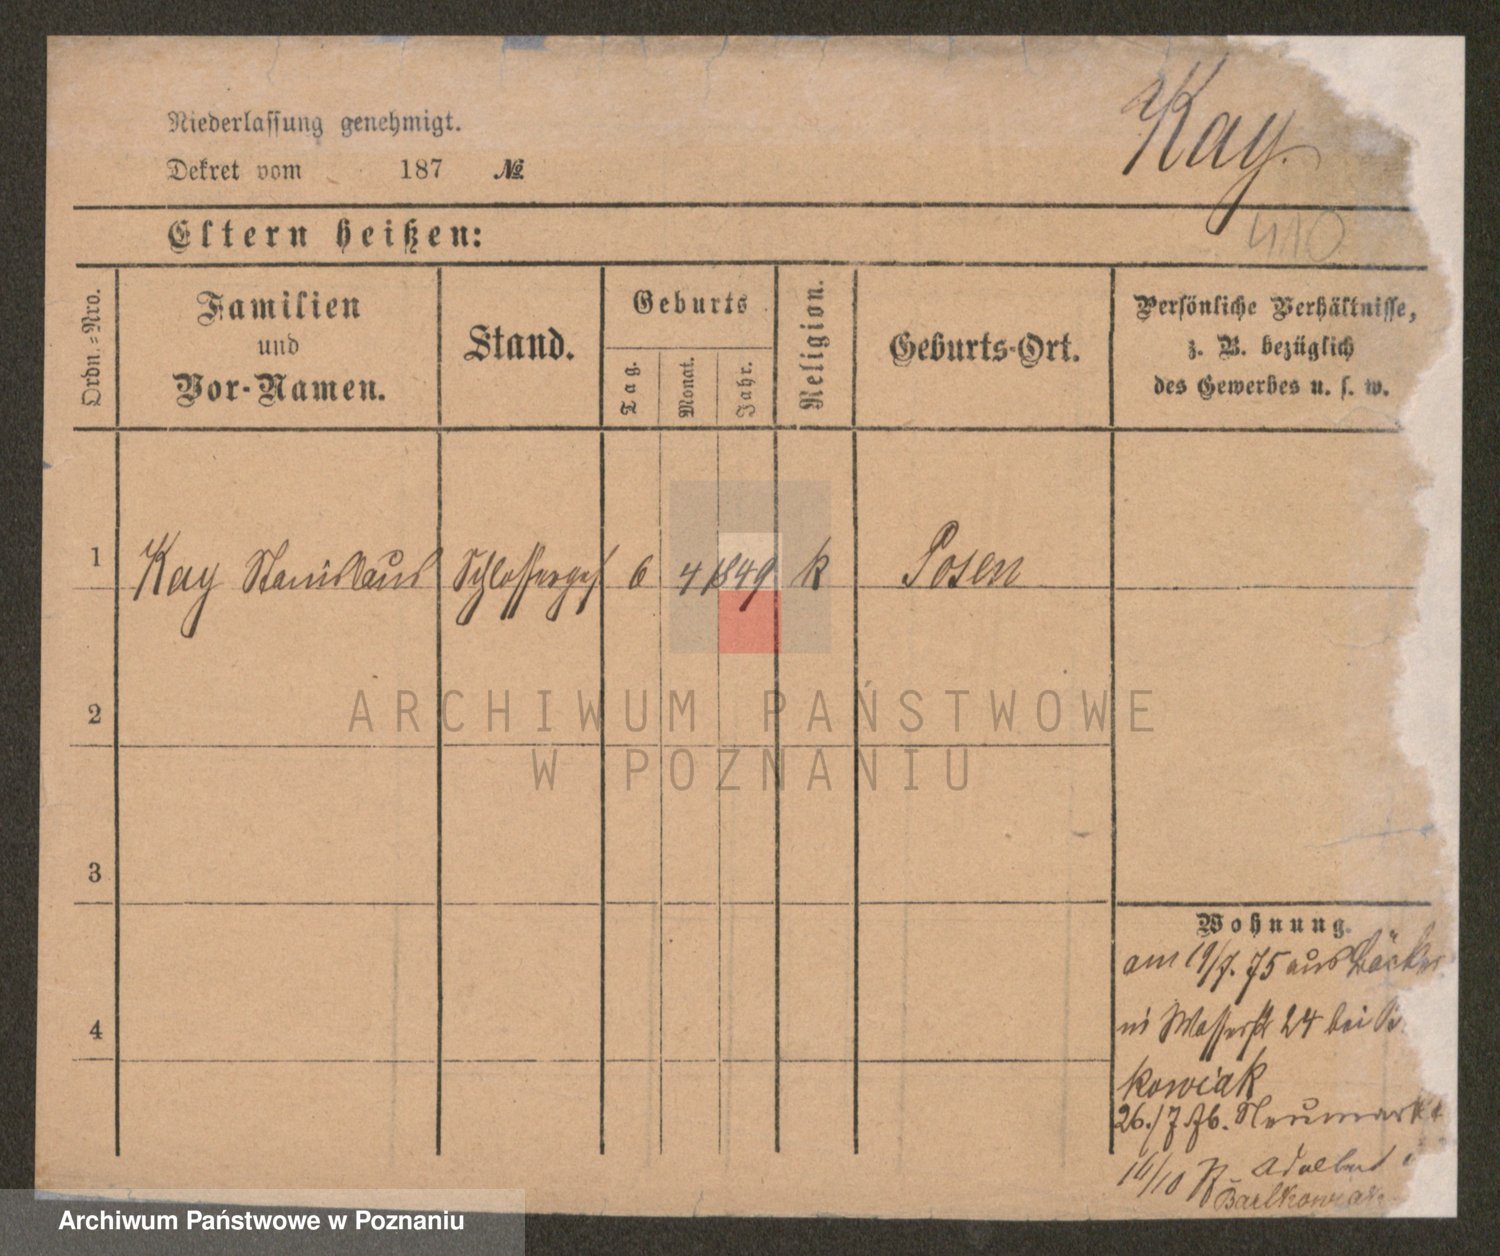 Niederlassung genehmigt.
Dekret vom 187 №
Kay.
410
Eltern heißen:
Ordn.-Nro.
Familien
und
Vor-Namen.
Stand.
Geburts
Tag.
Monat.
Jahr.
Religion.
Geburts-Ort.
Persönliche Verhältnisse,
z. B. bezüglich
des Gewerbes u. s. w.
1 Kay Stanislaus Schlosserges 6 4 1849 k Posen
2
3
4
Wohnung.
am 19/7. 75 aus
Wasserstr 24 bei
kowiak
26./7 76. Neumarkt
14/10 Adalbert
Bartkowiak
ARCHIWUM PAŃSTWOWE
W POZNANIU
Archiwum Państwowe w Poznaniu